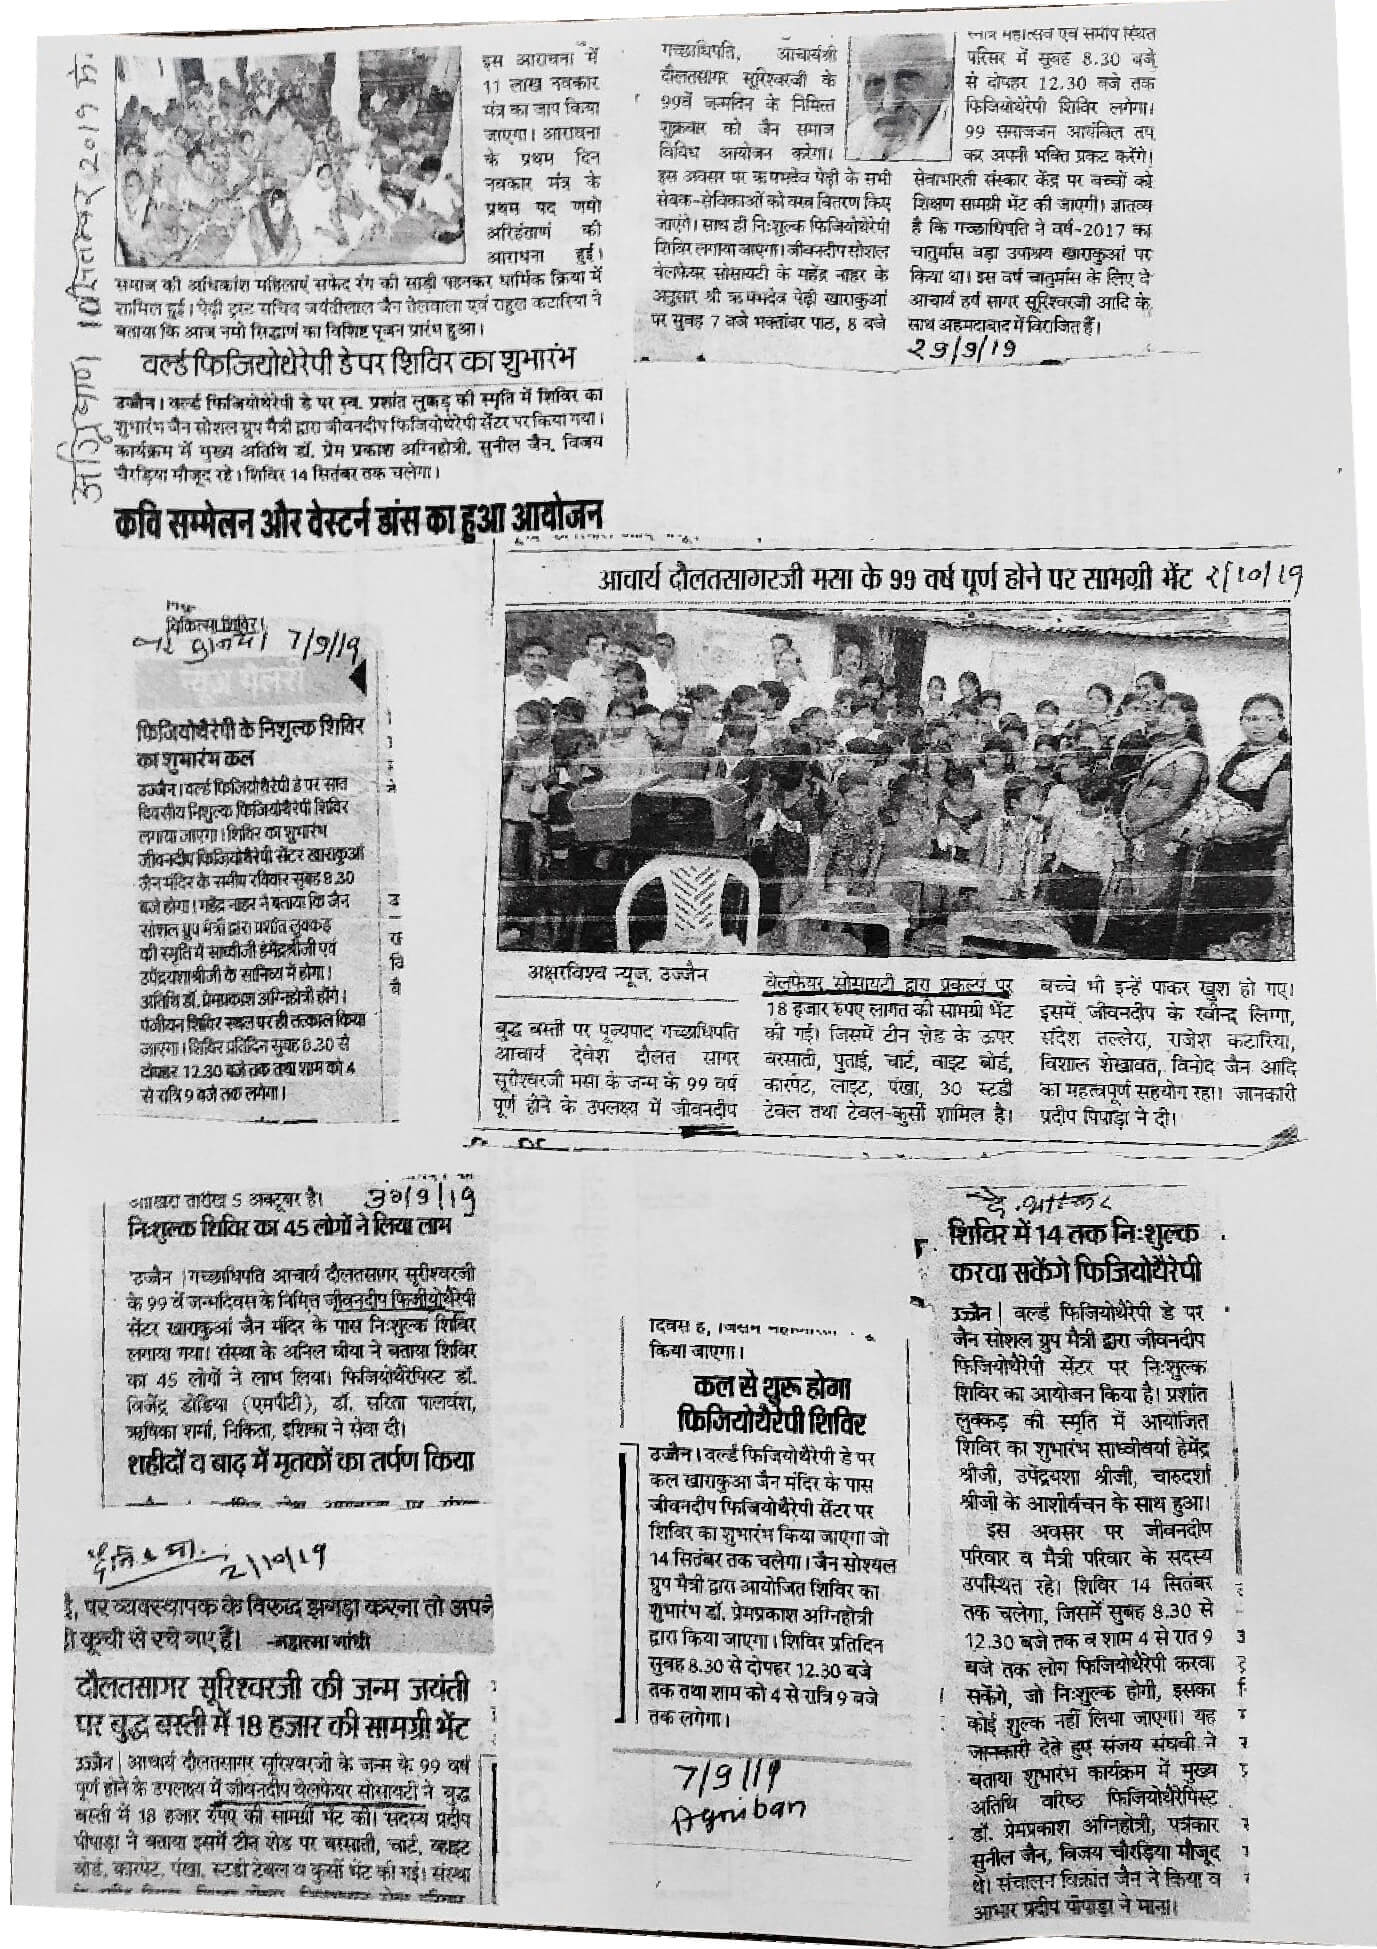 अग्निबाण 10 सितम्बर 2019 मे.
इस आराधना में
11 लाख नवकार
मंत्र का जाप किया
जाएगा। आराधना
के प्रथम दिन
नवकार मंत्र के
प्रथम पद णमो
अरिहंताणं की
आराधना हुई।
समाज की अधिकांश महिलाएं सफेद रंग की साड़ी पहनकर धार्मिक क्रिया में
शामिल हुई। पेढ़ी ट्रस्ट सचिव जयंतीलाल जैन तेलवाला एवं राहुल कटारिया ने
बताया कि आज नमो सिद्धाणं का विशिष्ट पूजन प्रारंभ हुआ।
वर्ल्ड फिजियोथेरेपी डे पर शिविर का शुभारंभ
उज्जैन। वर्ल्ड फिजियोथैरेपी डे पर स्व. प्रशांत लुक्कड़ की स्मृति में शिविर का
शुभारंभ जैन सोशल ग्रुप मैत्री द्वारा जीवनदीप फिजियोथैरेपी सेंटर पर किया गया।
कार्यक्रम में मुख्य अतिथि डॉ. प्रेम प्रकाश अग्निहोत्री, सुनील जैन, विजय
चौरड़िया मौजूद रहे। शिविर 14 सितंबर तक चलेगा।
कवि सम्मेलन और वेस्टर्न डांस का हुआ आयोजन
गच्छाधिपति, आचार्यश्री
दौलतसागर सूरिश्वरजी के
99वें जन्मदिन के निमित्त
शुक्रवार को जैन समाज
विविध आयोजन करेगा।
इस अवसर पर ऋषभदेव पेढ़ी के सभी
सेवक-सेविकाओं को वस्त्र वितरण किए
जाएंगे। साथ ही निःशुल्क फिजियोथैरेपी
शिविर लगाया जाएगा। जीवनदीप सोशल
वेलफेयर सोसायटी के महेंद्र नाहर के
अनुसार श्री ऋषभदेव पेढ़ी खाराकुआं
पर सुबह 7 बजे भक्तांबर पाठ, 8 बजे
स्नात्र महोत्सव एवं समीप स्थित
परिसर में सुबह 8.30 बजे
से दोपहर 12.30 बजे तक
फिजियोथेरेपी शिविर लगेगा।
99 समाजजन आयंबिल तप
कर अपनी भक्ति प्रकट करेंगे।
सेवाभारती संस्कार केंद्र पर बच्चों को
शिक्षण सामग्री भेंट की जाएगी। ज्ञातव्य
है कि गच्छाधिपति ने वर्ष-2017 का
चातुर्मास बड़ा उपाश्रय खाराकुआं पर
किया था। इस वर्ष चातुर्मास के लिए वे
आचार्य हर्ष सागर सूरिश्वरजी आदि के
साथ अहमदाबाद में विराजित हैं।
29/9/19
आचार्य दौलतसागरजी मसा के 99 वर्ष पूर्ण होने पर सामग्री भेंट २/10/19
अक्षरविश्व न्यूज, उज्जैन
बुद्ध बस्ती पर पूज्यपाद गच्छाधिपति
आचार्य देवेश दौलत सागर
सूरीश्वरजी मसा के जन्म के 99 वर्ष
पूर्ण होने के उपलक्ष्य में जीवनदीप
वेलफेयर सोसायटी द्वारा प्रकल्प पर
18 हजार रुपए लागत की सामग्री भेंट
की गई। जिसमें टीन शेड के ऊपर
बरसाती, पुताई, चार्ट, वाइट बोर्ड,
कारपेट, लाइट, पंखा, 30 स्टडी
टेबल तथा टेबल-कुर्सी शामिल है।
बच्चे भी इन्हें पाकर खुश हो गए।
इसमें जीवनदीप के रवीन्द्र लिग्गा,
संदेश तल्लेरा, राजेश कटारिया,
विशाल शेखावत, विनोद जैन आदि
का महत्वपूर्ण सहयोग रहा। जानकारी
प्रदीप पिपाड़ा ने दी।
चिकित्सा शिविर।
नई दुनिया 7/9/19
न्यूज गैलरी
फिजियोथैरेपी के निशुल्क शिविर
का शुभारंभ कल
उज्जैन। वर्ल्ड फिजियोथैरेपी डे पर सात
दिवसीय निशुल्क फिजियोथैरेपी शिविर
लगाया जाएगा। शिविर का शुभारंभ
जीवनदीप फिजियोथैरेपी सेंटर खाराकुआं
जैन मंदिर के समीप रविवार सुबह 8.30
बजे होगा। महेंद्र नाहर ने बताया कि जैन
सोशल ग्रुप मैत्री द्वारा प्रशांत लुक्कड़
की स्मृति में साध्वीजी हेमेंद्रश्रीजी एवं
उपेंद्रयशाश्रीजी के सानिध्य में होगा।
अतिथि डॉ. प्रेमप्रकाश अग्निहोत्री होंगे।
पंजीयन शिविर स्थल पर ही तत्काल किया
जाएगा। शिविर प्रतिदिन सुबह 8.30 से
दोपहर 12.30 बजे तक तथा शाम को 4
से रात्रि 9 बजे तक लगेगा।
आखरी तारीख 5 अक्टूबर है। 30/9/19
निःशुल्क शिविर का 45 लोगों ने लिया लाभ
उज्जैन। गच्छाधिपति आचार्य दौलतसागर सूरीश्वरजी
के 99 वें जन्मदिवस के निमित्त जीवनदीप फिजीयोथैरेपी
सेंटर खाराकुआं जैन मंदिर के पास निःशुल्क शिविर
लगाया गया। संस्था के अनिल घीया ने बताया शिविर
का 45 लोगों ने लाभ लिया। फिजियोथैरेपिस्ट डॉ.
विजेंद्र डोडिया (एमपीटी), डॉ. सरिता पालवंश,
ऋषिका शर्मा, निकिता, इशिका ने सेवा दी।
शहीदों व बाढ़ में मृतकों का तर्पण किया
2/10/19
है, पर व्यवस्थापक के विरुद्ध झगड़ा करना तो अपने
ही कूची से रचे गए हैं। -महात्मा गांधी
दौलतसागर सूरिश्वरजी की जन्म जयंती
पर बुद्ध बस्ती में 18 हजार की सामग्री भेंट
उज्जैन। आचार्य दौलतसागर सूरिश्वरजी के जन्म के 99 वर्ष
पूर्ण होने के उपलक्ष्य में जीवनदीप वेलफेयर सोसायटी ने बुद्ध
बस्ती में 18 हजार रुपए की सामग्री भेंट की। सदस्य प्रदीप
पीपाड़ा ने बताया इसमें टीन शेड पर बरसाती, चार्ट, व्हाइट
बोर्ड, कारपेट, पंखा, स्टडी टेबल व कुर्सी भेंट की गई। संस्था
किया जाएगा।
कल से शुरू होगा
फिजियोथैरेपी शिविर
उज्जैन। वर्ल्ड फिजियोथैरेपी डे पर
कल खाराकुआ जैन मंदिर के पास
जीवनदीप फिजियोथैरेपी सेंटर पर
शिविर का शुभारंभ किया जाएगा जो
14 सितंबर तक चलेगा। जैन सोश्यल
ग्रुप मैत्री द्वारा आयोजित शिविर का
शुभारंभ डॉ. प्रेमप्रकाश अग्निहोत्री
द्वारा किया जाएगा। शिविर प्रतिदिन
सुबह 8.30 से दोपहर 12.30 बजे
तक तथा शाम को 4 से रात्रि 9 बजे
तक लगेगा।
7/9/19
Agniban
दै. भास्कर
शिविर में 14 तक निःशुल्क
करवा सकेंगे फिजियोथैरेपी
उज्जैन। वर्ल्ड फिजियोथैरेपी डे पर
जैन सोशल ग्रुप मैत्री द्वारा जीवनदीप
फिजियोथैरेपी सेंटर पर निःशुल्क
शिविर का आयोजन किया है। प्रशांत
लुक्कड़ की स्मृति में आयोजित
शिविर का शुभारंभ साध्वीवर्या हेमेंद्र
श्रीजी, उपेंद्रयशा श्रीजी, चारुदर्शा
श्रीजी के आशीर्वचन के साथ हुआ।
इस अवसर पर जीवनदीप
परिवार व मैत्री परिवार के सदस्य
उपस्थित रहे। शिविर 14 सितंबर
तक चलेगा, जिसमें सुबह 8.30 से
12.30 बजे तक व शाम 4 से रात 9
बजे तक लोग फिजियोथैरेपी करवा
सकेंगे, जो निःशुल्क होगी, इसका
कोई शुल्क नहीं लिया जाएगा। यह
जानकारी देते हुए संजय संघवी ने
बताया शुभारंभ कार्यक्रम में मुख्य
अतिथि वरिष्ठ फिजियोथैरेपिस्ट
डॉ. प्रेमप्रकाश अग्निहोत्री, पत्रकार
सुनील जैन, विजय चौरड़िया मौजूद
थे। संचालन विक्रांत जैन ने किया व
आभार प्रदीप पीपाड़ा ने माना।